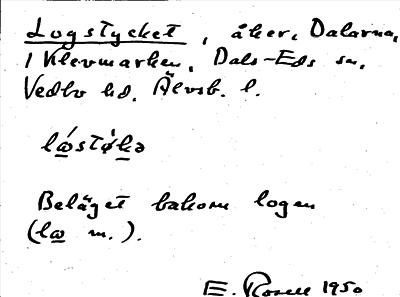 Logstycket, åker, Dalarna,
i Klevmarken, Dals-Eds sn,
Vedbo hd, Älvsb. l.
Beläget bakom logen
(lω m.).
E. Rosell 1950